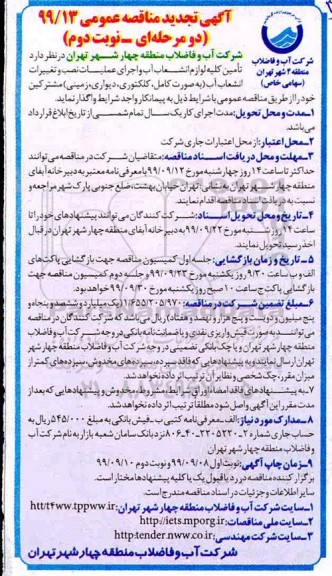 آگهی تجدید مناقصه عمومی ۹۹/۱۳
(دو مرحله‌ای – نوبت دوم)
شرکت آب و فاضلاب
منطقه ۴ شهر تهران
(سهامی خاص)
شرکت آب و فاضلاب منطقه چهار شهر تهران در نظر دارد
تأمین کلیه لوازم انشعاب آب و اجرای عملیات نصب و تغییرات
انشعاب آب (به صورت کامل، کلکتوری، دیواری، زمینی) مشترکین
خود را از طریق مناقصه عمومی با شرایط ذیل به پیمانکار واجد شرایط واگذار نماید.
۱– مدت و محل تحویل: مدت اجرای کار یک سال تمام شمسی از تاریخ ابلاغ قرارداد
می‌باشد.
۲– محل اعتبار: از محل اعتبارات جاری شرکت
۳– مهلت و محل دریافت اسناد مناقصه: متقاضیان شرکت در مناقصه می‌توانند
حداکثر تا ساعت ۱۴ روز چهارشنبه مورخ ۹۹/۰۹/۱۲ با معرفی‌نامه معتبر به دبیرخانه آبفای
منطقه چهار شهر تهران به نشانی تهران خیابان بهشت، ضلع جنوبی پارک شهر مراجعه و
نسبت به دریافت اسناد مناقصه اقدام نمایند.
۴– تاریخ و محل تحویل اسناد: شرکت کنندگان می توانند پیشنهادهای خود را تا
ساعت ۱۴ روز شنبه مورخ ۹۹/۰۹/۲۲ به دبیرخانه آبفای منطقه چهار شهر تهران در قبال
اخذ رسید تحویل نمایند.
۵– تاریخ و زمان بازگشایی: جلسه اول کمیسیون مناقصه جهت بازگشایی پاکت‌های
الف و ب ساعت ۹/۳۰ روز یکشنبه مورخ ۹۹/۰۹/۲۳ و جلسه دوم کمیسیون مناقصه جهت
بازگشایی پاکت ج ساعت ۱۰ صبح روز یکشنبه مورخ ۹۹/۰۹/۳۰ خواهد بود.
۶– مبلغ تضمین شرکت در مناقصه: ۱/۶۵۵/۲۰۵/۹۷۰ (یک میلیارد و ششصد و پنجاه و
پنج میلیون و دویست و پنج هزار و نهصد و هفتاد) ریال می‌باشد که شرکت کنندگان در مناقصه
می‌توانند به صورت فیش واریز نقدی و یا ضمانت‌نامه بانکی در وجه شرکت آب و فاضلاب
منطقه چهار شهر تهران و یا چک بانکی تضمینی در وجه شرکت آب و فاضلاب منطقه چهار شهر
تهران ارسال نمایند به پیشنهادهایی که فاقد سپرده، سپرده‌های مخدوش، سپرده‌های کمتر از
میزان مقرر، چک شخصی و نظایر آن ترتیب اثر داده نخواهد شد.
۷– به پیشنهادهای فاقد امضاء اوراق شرایط، مشروط، مخدوش و پیشنهادهایی که بعد از
مدت مقرر این آگهی واصل شود مطلقاً ترتیب اثر داده نخواهد شد.
۸– مدارک مورد نیاز: الف– معرفی‌نامه کتبی ب– فیش بانکی به مبلغ ۵۴۵/۰۰۰ ریال به
حساب جاری شماره نزد بانک سامان شعبه بازار به نام شرکت آب و
فاضلاب منطقه چهار شهر تهران.
۹– زمان چاپ آگهی: نوبت اول ۹۹/۰۹/۰۸ و نوبت دوم ۹۹/۰۹/۱۰
برگزار کننده مناقصه در رد یا قبول یک یا کلیه پیشنهادها مختار است.
سایر اطلاعات و جزئیات در اسناد مناقصه مندرج است.
۱– سایت شرکت آب و فاضلاب منطقه چهار شهر تهران: htt/t4ww.tppww.ir
۲– سایت ملی مناقصات: http://iets.mporg.ir
۳– سایت شرکت مهندسی: http:tender.nww.co.ir
شرکت آب و فاضلاب منطقه چهار شهر تهران